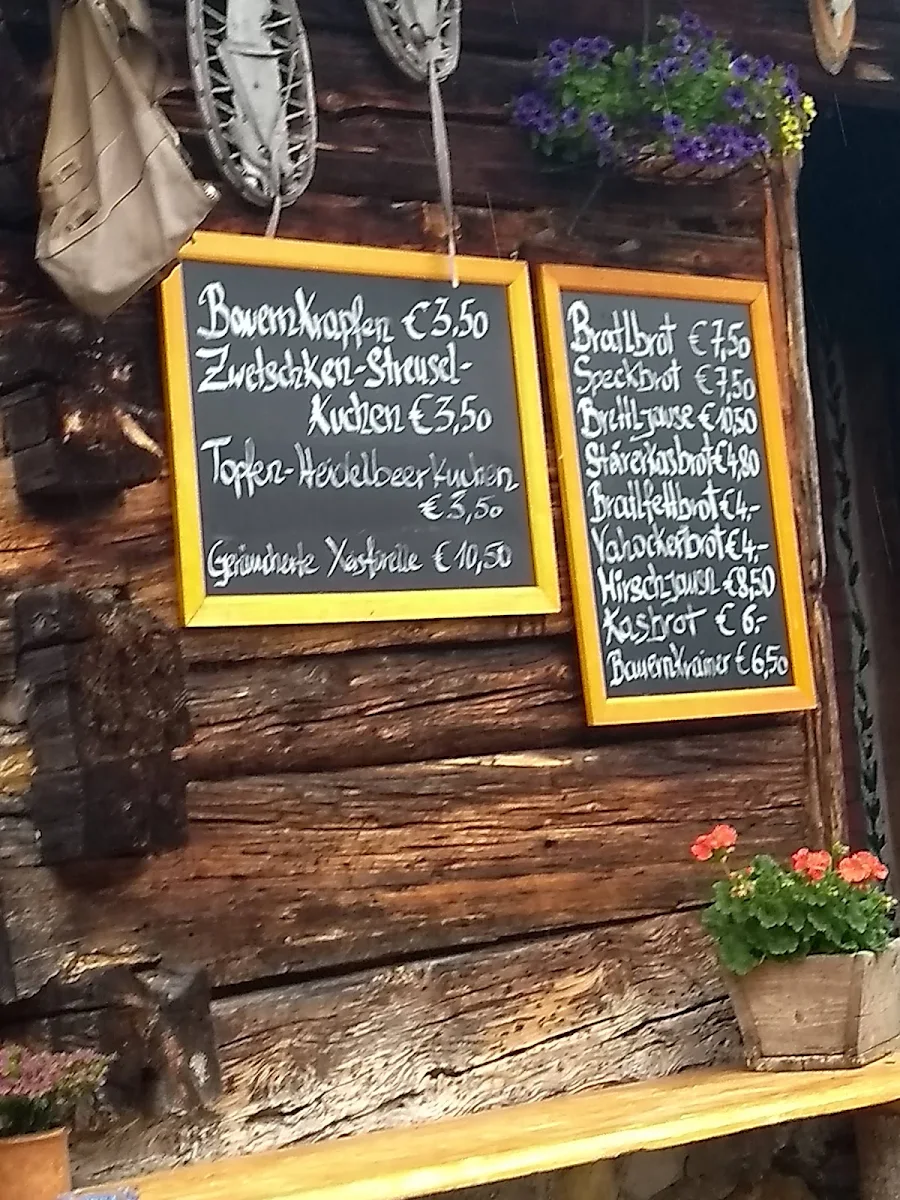 Bauernkrapfen €3,50
Zwetschken-Streusel-
Kuchen €3,50
Topfen-Heidelbeerkuchen
€3,50
Geräucherte Xastforelle €10,50
Bratlbrot €7,50
Speckbrot €7,50
Brettljause €10,50
Steirerkasbrot €4,80
Bratlfettbrot €4,-
Vahackertbrot €4,-
Hirschjausn €8,50
Kasbrot €6,-
Bauernkrainer €6,50